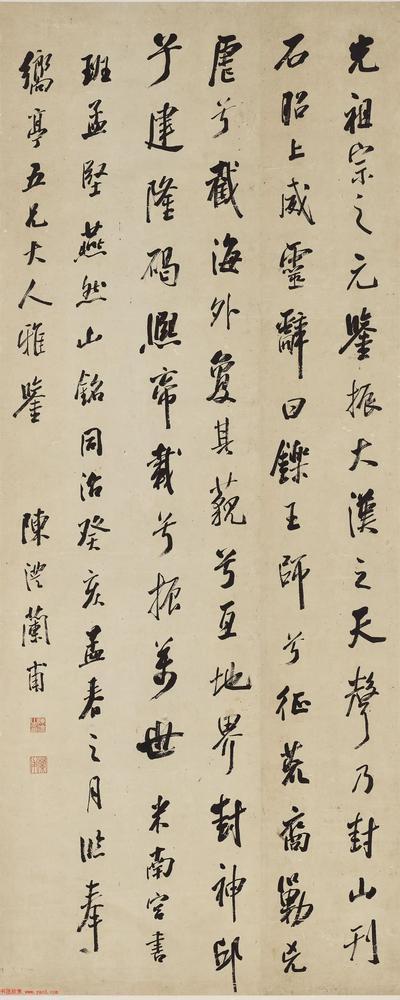 光祖宗之元鑒振大漢之天聲乃封山刊
石昭上威靈辭曰鑠王師兮征荒裔勦兇
虐兮截海外夐其藐兮亙地界封神邱
兮建隆碣熙帝載兮振萬世 米南宮書
班孟堅燕然山銘同治癸亥孟春之月臨奉
繘亭五兄大人雅鑒 陳澧蘭甫
www.yac8.com